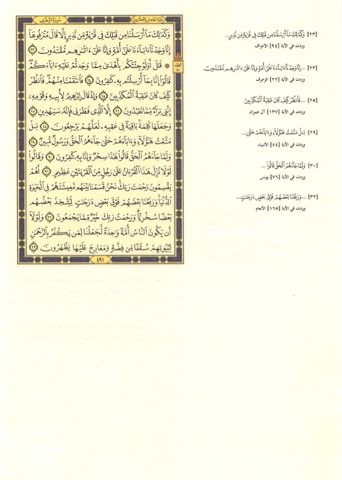 الجزء الخامس والعشرون
سورة الزخرف
وَكَذَٰلِكَ مَآ أَرْسَلْنَا مِن قَبْلِكَ فِي قَرْيَةٍ مِّن نَّذِيرٍ إِلَّا قَالَ مُتْرَفُوهَآ
إِنَّا وَجَدْنَآ ءَابَآءَنَا عَلَىٰٓ أُمَّةٍ وَإِنَّا عَلَىٰٓ ءَاثَٰرِهِم مُّقْتَدُونَ ٢٣
۞ قَٰلَ أَوَلَوْ جِئْتُكُم بِأَهْدَىٰ مِمَّا وَجَدتُّمْ عَلَيْهِ ءَابَآءَكُمْ
قَالُوٓا۟ إِنَّا بِمَآ أُرْسِلْتُم بِهِۦ كَٰفِرُونَ ٢٤ فَٱنتَقَمْنَا مِنْهُمْ فَٱنظُرْ
كَيْفَ كَانَ عَٰقِبَةُ ٱلْمُكَذِّبِينَ ٢٥ وَإِذْ قَالَ إِبْرَٰهِيمُ لِأَبِيهِ وَقَوْمِهِۦٓ
إِنَّنِي بَرَآءٌ مِّمَّا تَعْبُدُونَ ٢٦ إِلَّا ٱلَّذِي فَطَرَنِي فَإِنَّهُۥ سَيَهْدِينِ ٢٧
وَجَعَلَهَا كَلِمَةًۢ بَاقِيَةً فِي عَقِبِهِۦ لَعَلَّهُمْ يَرْجِعُونَ ٢٨ بَلْ
مَتَّعْتُ هَٰٓؤُلَآءِ وَءَابَآءَهُمْ حَتَّىٰ جَآءَهُمُ ٱلْحَقُّ وَرَسُولٌ مُّبِينٌ ٢٩
وَلَمَّا جَآءَهُمُ ٱلْحَقُّ قَالُوا۟ هَٰذَا سِحْرٌ وَإِنَّا بِهِۦ كَٰفِرُونَ ٣٠ وَقَالُوا۟
لَوْلَا نُزِّلَ هَٰذَا ٱلْقُرْءَانُ عَلَىٰ رَجُلٍ مِّنَ ٱلْقَرْيَتَيْنِ عَظِيمٍ ٣١ أَهُمْ
يَقْسِمُونَ رَحْمَتَ رَبِّكَ نَحْنُ قَسَمْنَا بَيْنَهُم مَّعِيشَتَهُمْ فِي ٱلْحَيَوٰةِ
ٱلدُّنْيَا وَرَفَعْنَا بَعْضَهُمْ فَوْقَ بَعْضٍ دَرَجَٰتٍ لِّيَتَّخِذَ بَعْضُهُم
بَعْضًا سُخْرِيًّا وَرَحْمَتُ رَبِّكَ خَيْرٌ مِّمَّا يَجْمَعُونَ ٣٢ وَلَوْلَآ
أَن يَكُونَ ٱلنَّاسُ أُمَّةً وَٰحِدَةً لَّجَعَلْنَا لِمَن يَكْفُرُ بِٱلرَّحْمَٰنِ
لِبُيُوتِهِمْ سُقُفًا مِّن فِضَّةٍ وَمَعَارِجَ عَلَيْهَا يَظْهَرُونَ ٣٣
٤٩١
[٢٣] وَكَذَٰلِكَ مَآ أَرْسَلْنَا مِن قَبْلِكَ فِي قَرْيَةٍ مِّن نَّذِيرٍ...
وردت في الآية [٩٤] الأعراف
[٢٣] ...إِنَّا وَجَدْنَآ ءَابَآءَنَا عَلَىٰٓ أُمَّةٍ وَإِنَّا عَلَىٰٓ ءَاثَٰرِهِم مُّقْتَدُونَ
وردت في الآية [٢٢] الزخرف
[٢٥] ...فَٱنظُرْ كَيْفَ كَانَ عَٰقِبَةُ ٱلْمُكَذِّبِينَ
وردت في الآية [١٣٧] آل عمران
[٢٩] بَلْ مَتَّعْتُ هَٰٓؤُلَآءِ وَءَابَآءَهُمْ حَتَّىٰ...
وردت في الآية [٤٤] الأنبياء
[٣٠] وَلَمَّا جَآءَهُمُ ٱلْحَقُّ قَالُوا۟...
وردت في الآية [٧٦] يونس
[٣٢] ...وَرَفَعْنَا بَعْضَهُمْ فَوْقَ بَعْضٍ دَرَجَٰتٍ...
وردت في الآية [١٦٥] الأنعام